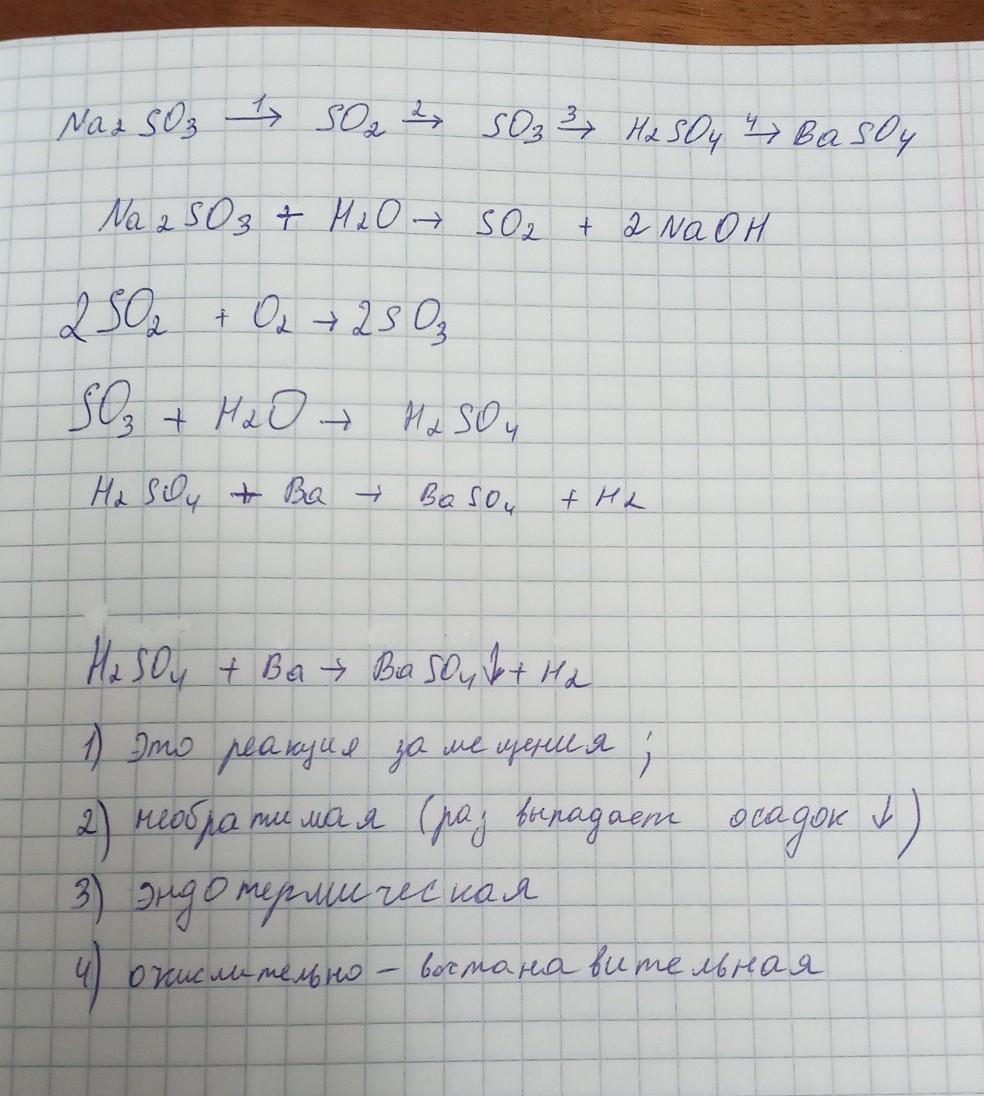 Na2SO3 1→ SO2 2→ SO3 3→ H2SO4 4→ BaSO4
Na2SO3 + H2O → SO2 + 2NaOH
2SO2 + O2 → 2SO3
SO3 + H2O → H2SO4
H2SO4 + Ba → BaSO4 + H2
H2SO4 + Ba → BaSO4↓ + H2
1) Это реакция замещения ;
2) необратимая (раз выпадает осадок ↓)
3) эндотермическая
4) окислительно - востанавительная